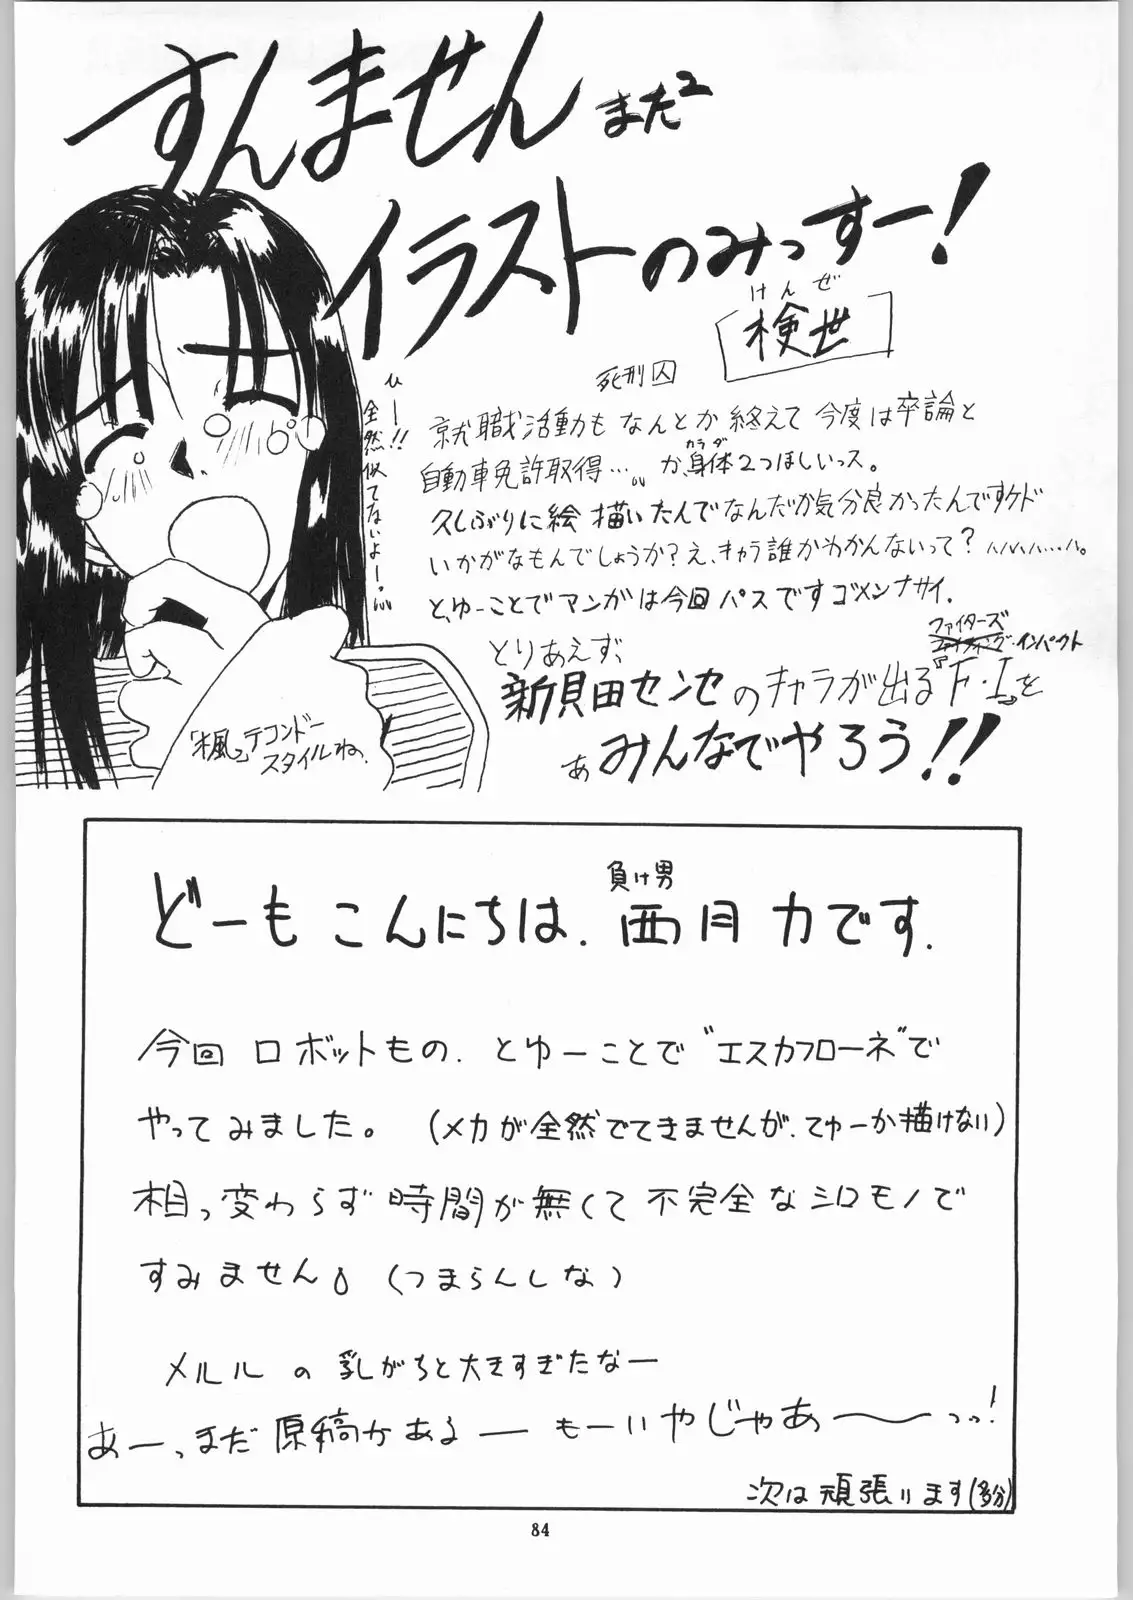 すんません まだ²
イラストのみっすー!
けんぜ
検世
死刑囚
就職活動もなんとか終えて今度は卒論と
自動車免許取得…。か、身体2つほしいっス。
カラダ
久しぶりに絵描いたんでなんだか気分良かったんですケド
いかがなもんでしょうか?え、キャラ誰かわかんないって?ハハハハ…ハ。
と、ゆーことでマンガは今回パスですゴメンナサイ.
とりあえず、
ファイターズ
・インパクト
新貝田センセのキャラが出る『F・I』を
あ みんなでやろう!!
ひー!!
全然似てないよー。
「楓」テコンドー
スタイルね。
負け男
どーもこんにちは.西月力です.
今回ロボットもの.とゆーことで"エスカフローネ"で
やってみました。(メカが全然でてきませんが.てゆーか描けない)
相っ変わらず時間が無くて不完全なシロモノで
すみません。(つまらんしな)
メルルの乳がちと大きすぎたなー
あーっまだ原稿があるーもーいやじゃあ〜〜っっ!
次は頑張ります(多分)
84